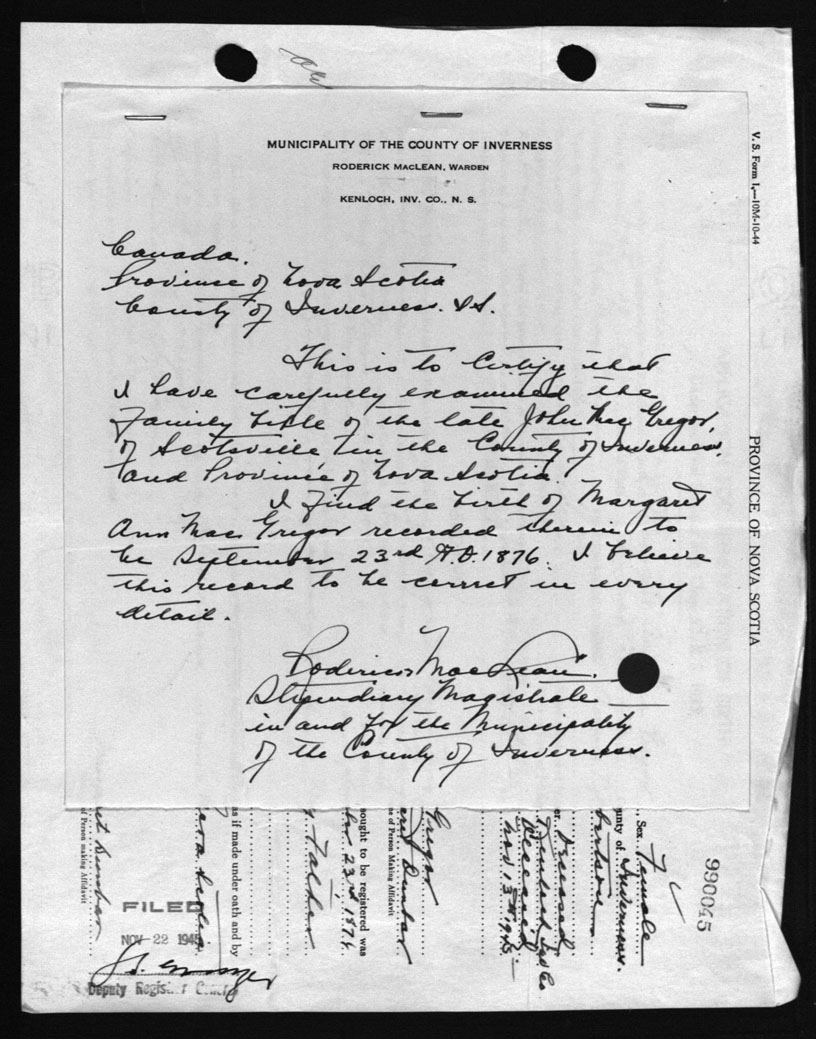 MUNICIPALITY OF THE COUNTY OF INVERNESS
RODERICK MACLEAN, WARDEN
KENLOCH, INV. CO., N. S.
Canada.
Province of Nova Scotia
County of Inverness. S.S.
This is to Certify that
I have carefully examined the
Family bible of the late John Mac Gregor,
of Scotsville in the County of Inverness,
and Province of Nova Scotia.
I find the birth of Margaret
Ann Mac Gregor recorded therein to
be September 23rd A.D. 1876. I believe
this record to be correct in every
detail.
Roderick MacLean.
Stipendiary Magistrate
in and for the Municipality
of the County of Inverness.
V. S. Form 1,—10M-10-44
PROVINCE OF NOVA SCOTIA
990045
Sex Female
unty of Inverness.
Deceased
Deceased
Nov 13
Gregor
Dunbar
ne of Person Making Affidavit
sought to be registered was
23rd, 1876
Father
as if made under oath and by
Nova Scotia
of Person making Affidavit
FILED
NOV 22 1945
Deputy Registrar General